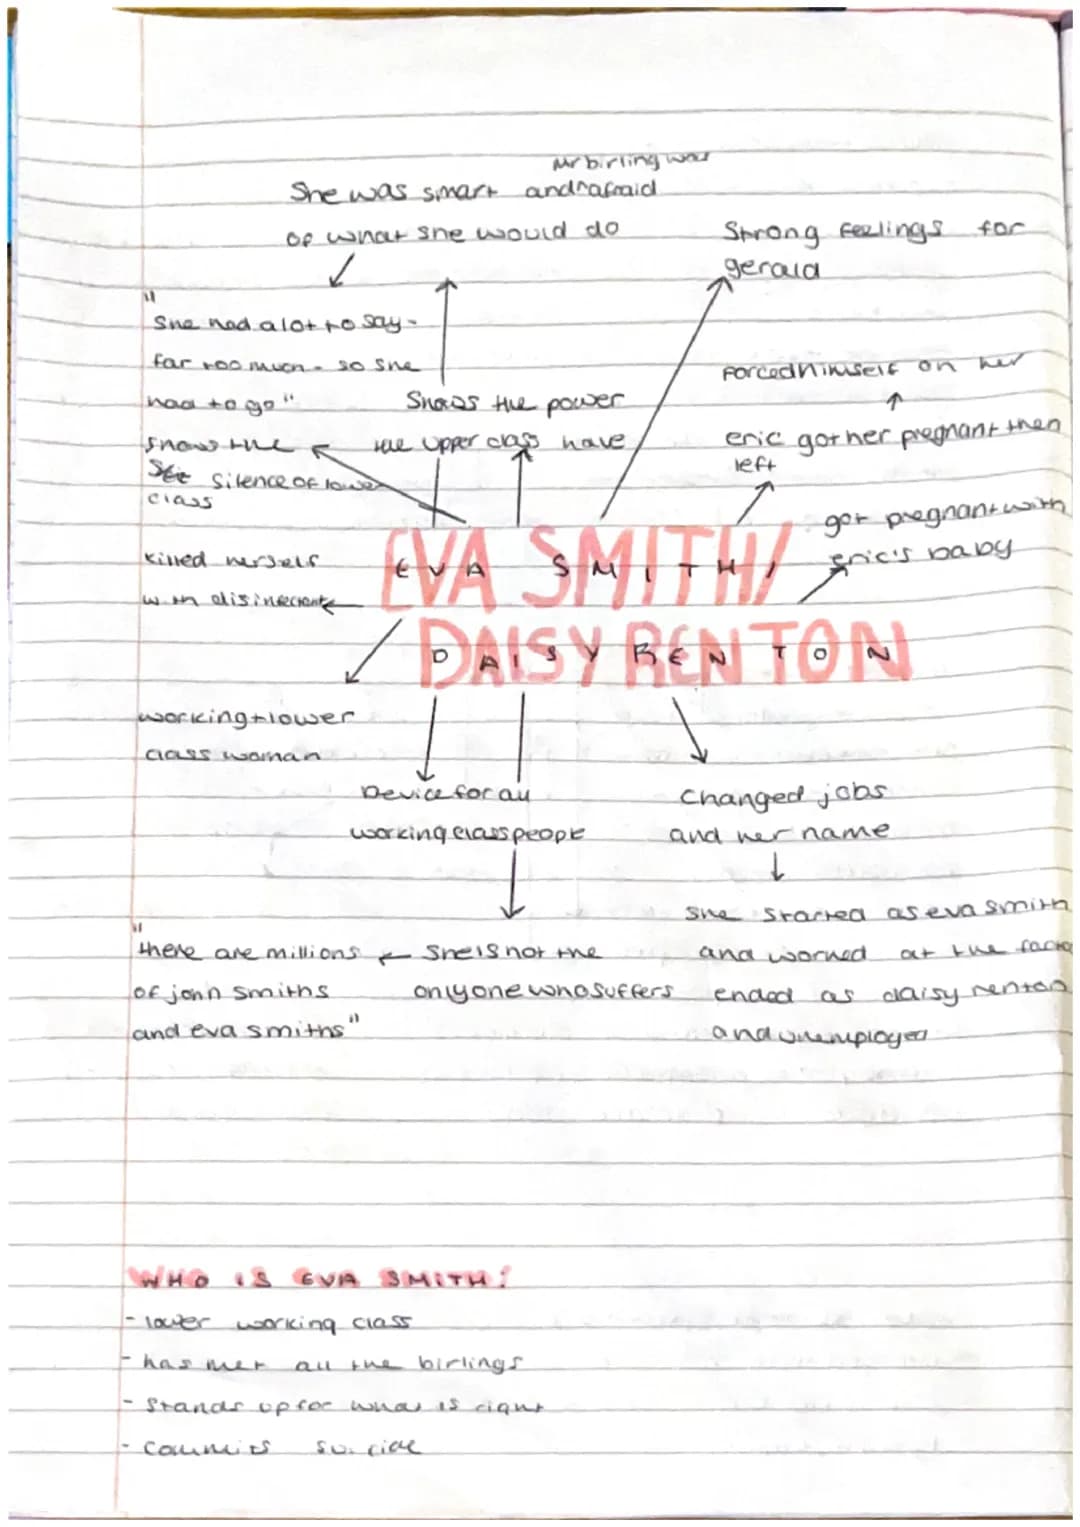 Mr birling was
She was smart and afraid
of what she would do
Strong feelings for
gerald
"
She had a lot to say -
far too much - so she
had to go"
shows the
silence of lower
class
Shows the power
the upper class have
Forced himself on her
eric got her pregnant then
left
got pregnant with
eric's baby
killed herself
with disinfectant
EVA SMITH/
DAISY RENTON
working + lower
class woman
Device for all
working class people
Changed jobs
and her name
she started as eva smith
and worked at the facto
ended as daisy renton
and unemployed
She is not the
only one who suffers
"
there are millions
of john smiths
and eva smiths"
WHO IS EVA SMITH:
- lower working class
- has met all the birlings
- Stands up for what is right
- Commits suicide